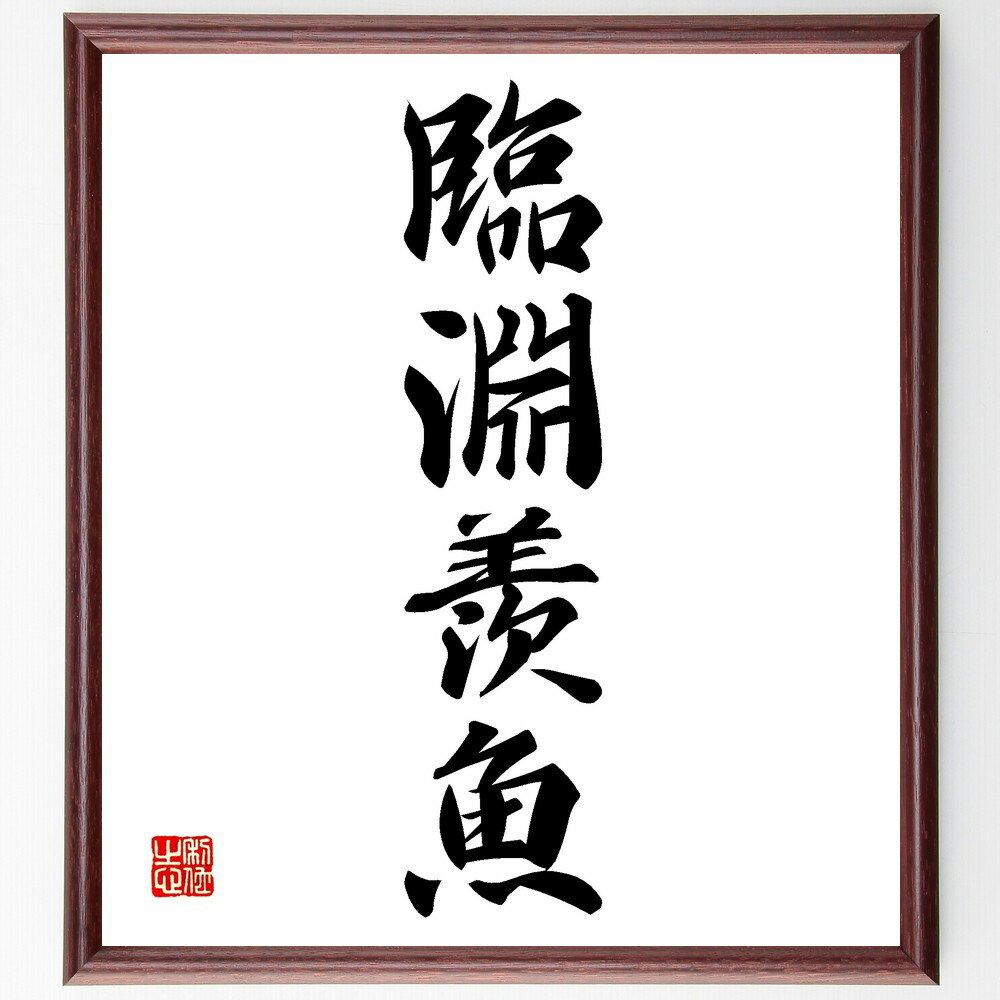 臨淵羨魚